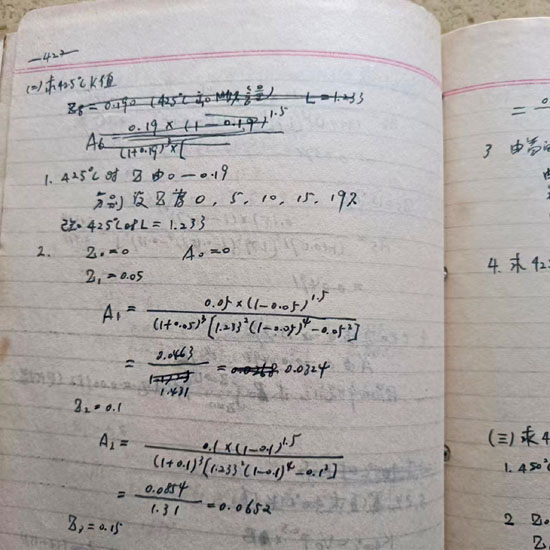 —422—
(二) 求425℃K值
Z8=0.190 (425℃ L=1.233
A6 0.19×(1-0.19)^1.5
(1+0.19)^3×[
1. 425℃时 Z由0—0.19
分别设Z为0, 5, 10, 15, 19%
425℃时L=1.233
2. Z0=0 A0=0
Z1=0.05
A1= 0.05×(1-0.05)^1.5
(1+0.05)^3[1.233^2(1-0.05)^4-0.05^2]
= 0.0463
1.431
= 0.0324
Z2=0.1
A2= 0.1×(1-0.1)^1.5
(1+0.1)^3[1.233^2(1-0.1)^4-0.1^2]
= 0.0854
1.31
=0.0652
Z3=0.15
3 由
4. 求42
(三) 求4
1. 450°
2 Z0
Z